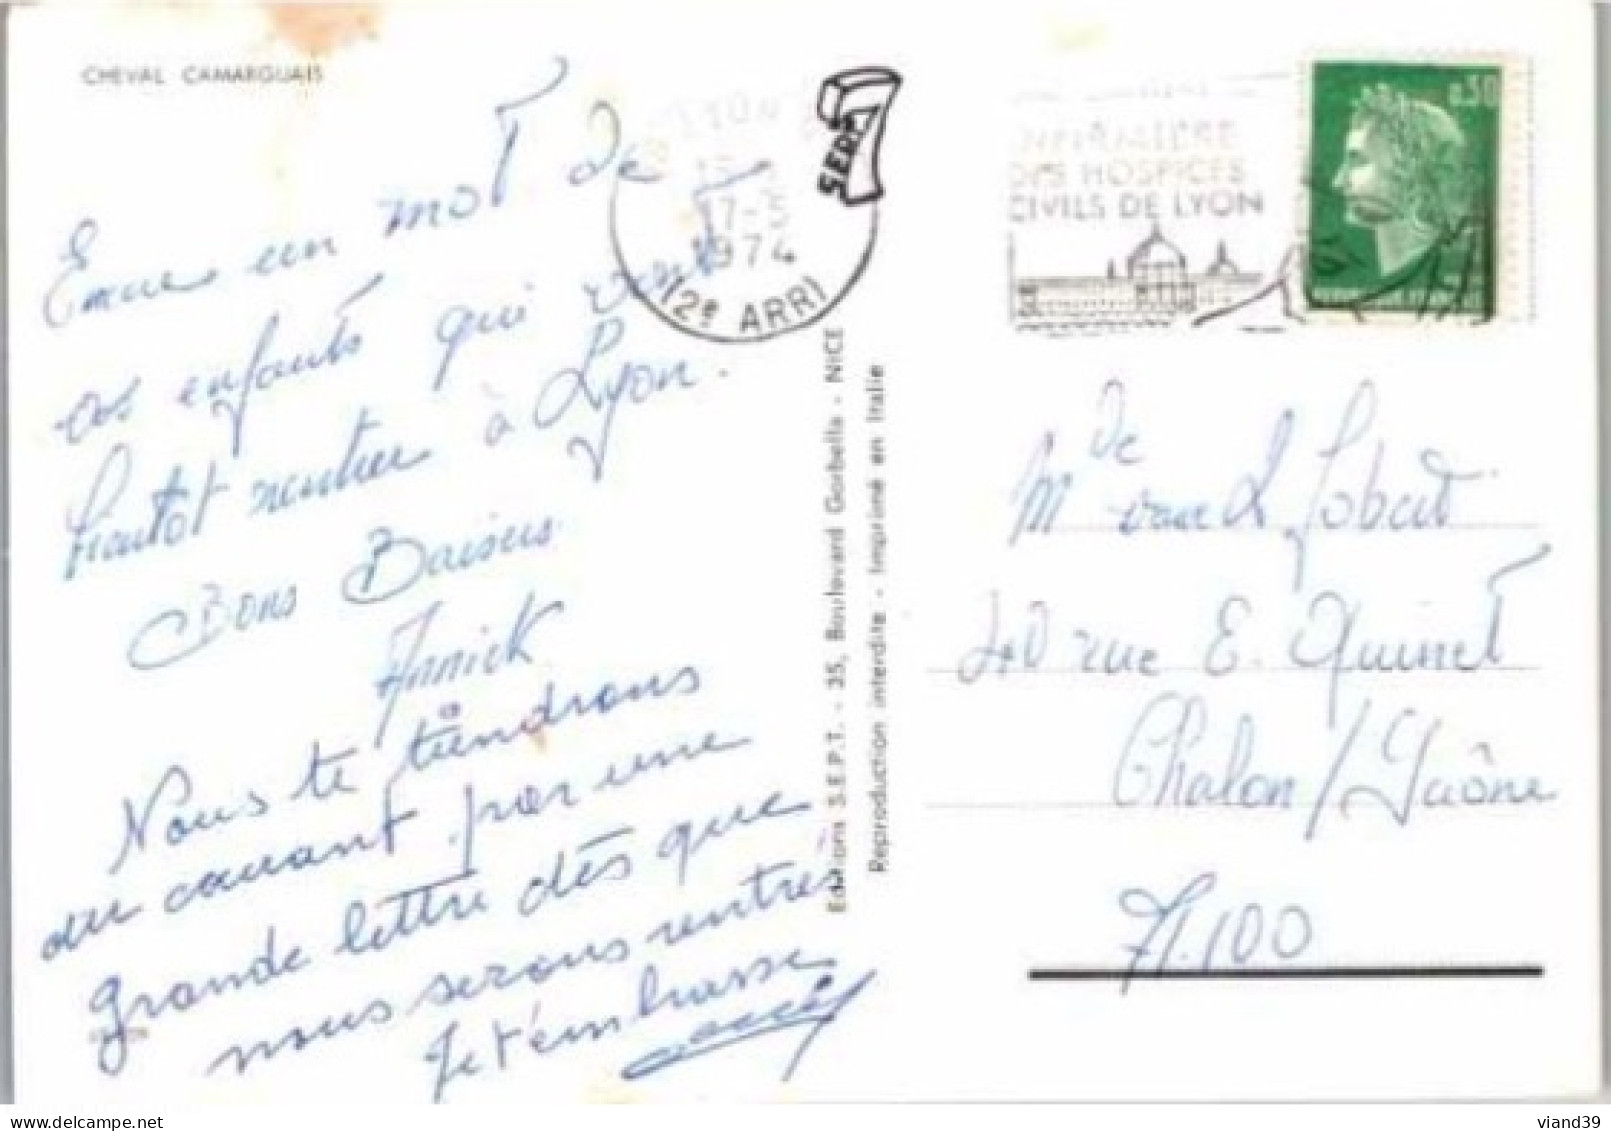 CHEVAL CAMARGUAIS
Encore un mot de
tes enfants qui vont
bientôt rentrer à Lyon.
Bons Baisers
Annick
Nous te tiendrons
au courant par une
grande lettre dès que
nous serons rentrés
Je t'embrasse
LYON
17-5
1974
(2e ARR)
SEPT
INFIRMIERE
DES HOSPICES
CIVILS DE LYON
0.30
Editions S.E.P.T. - 35, Boulevard Gorbella - NICE
Reproduction interdite - Imprimé en Italie
Mde
40 rue E. Quinet
Chalon/Saône
71.100
viand39